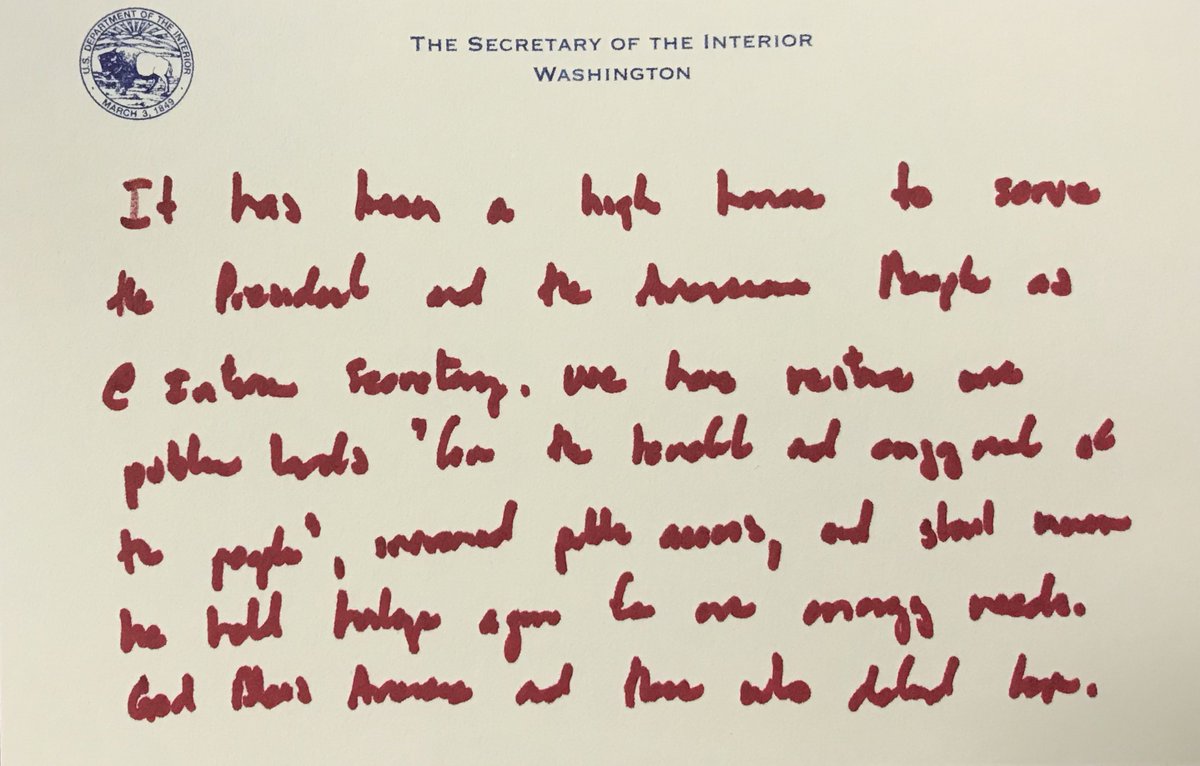 U.S. DEPARTMENT OF THE INTERIOR
MARCH 3, 1849
THE SECRETARY OF THE INTERIOR
WASHINGTON
It has been a high honor to serve
the President and the American People as
@ Interior Secretary. We have restore our
public lands "for the benefit and enjoyment of
the people", increased public access, and shall never
be held hostage again for our energy needs.
God Bless America and those who defend her.